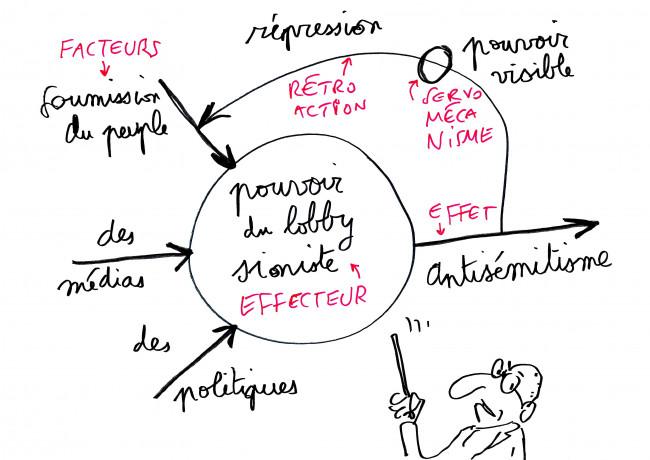 FACTEURS
soumission
du peuple
répression
RETRO
ACTION
pouvoir
visible
SERVO
MÉCA
NISME
pouvoir
du lobby
sioniste
EFFECTEUR
des
médias
des
politiques
EFFET
antisémitisme